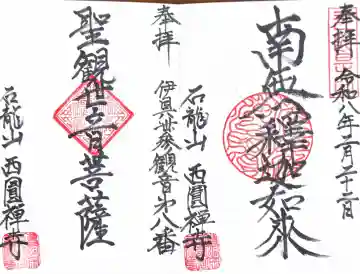 奉拝
令和八年二月二十二日
南無釋迦如来
石龍山 西圓禅寺
奉拝
伊具世参観音第八番
聖観世音菩薩
石龍山 西圓禅寺